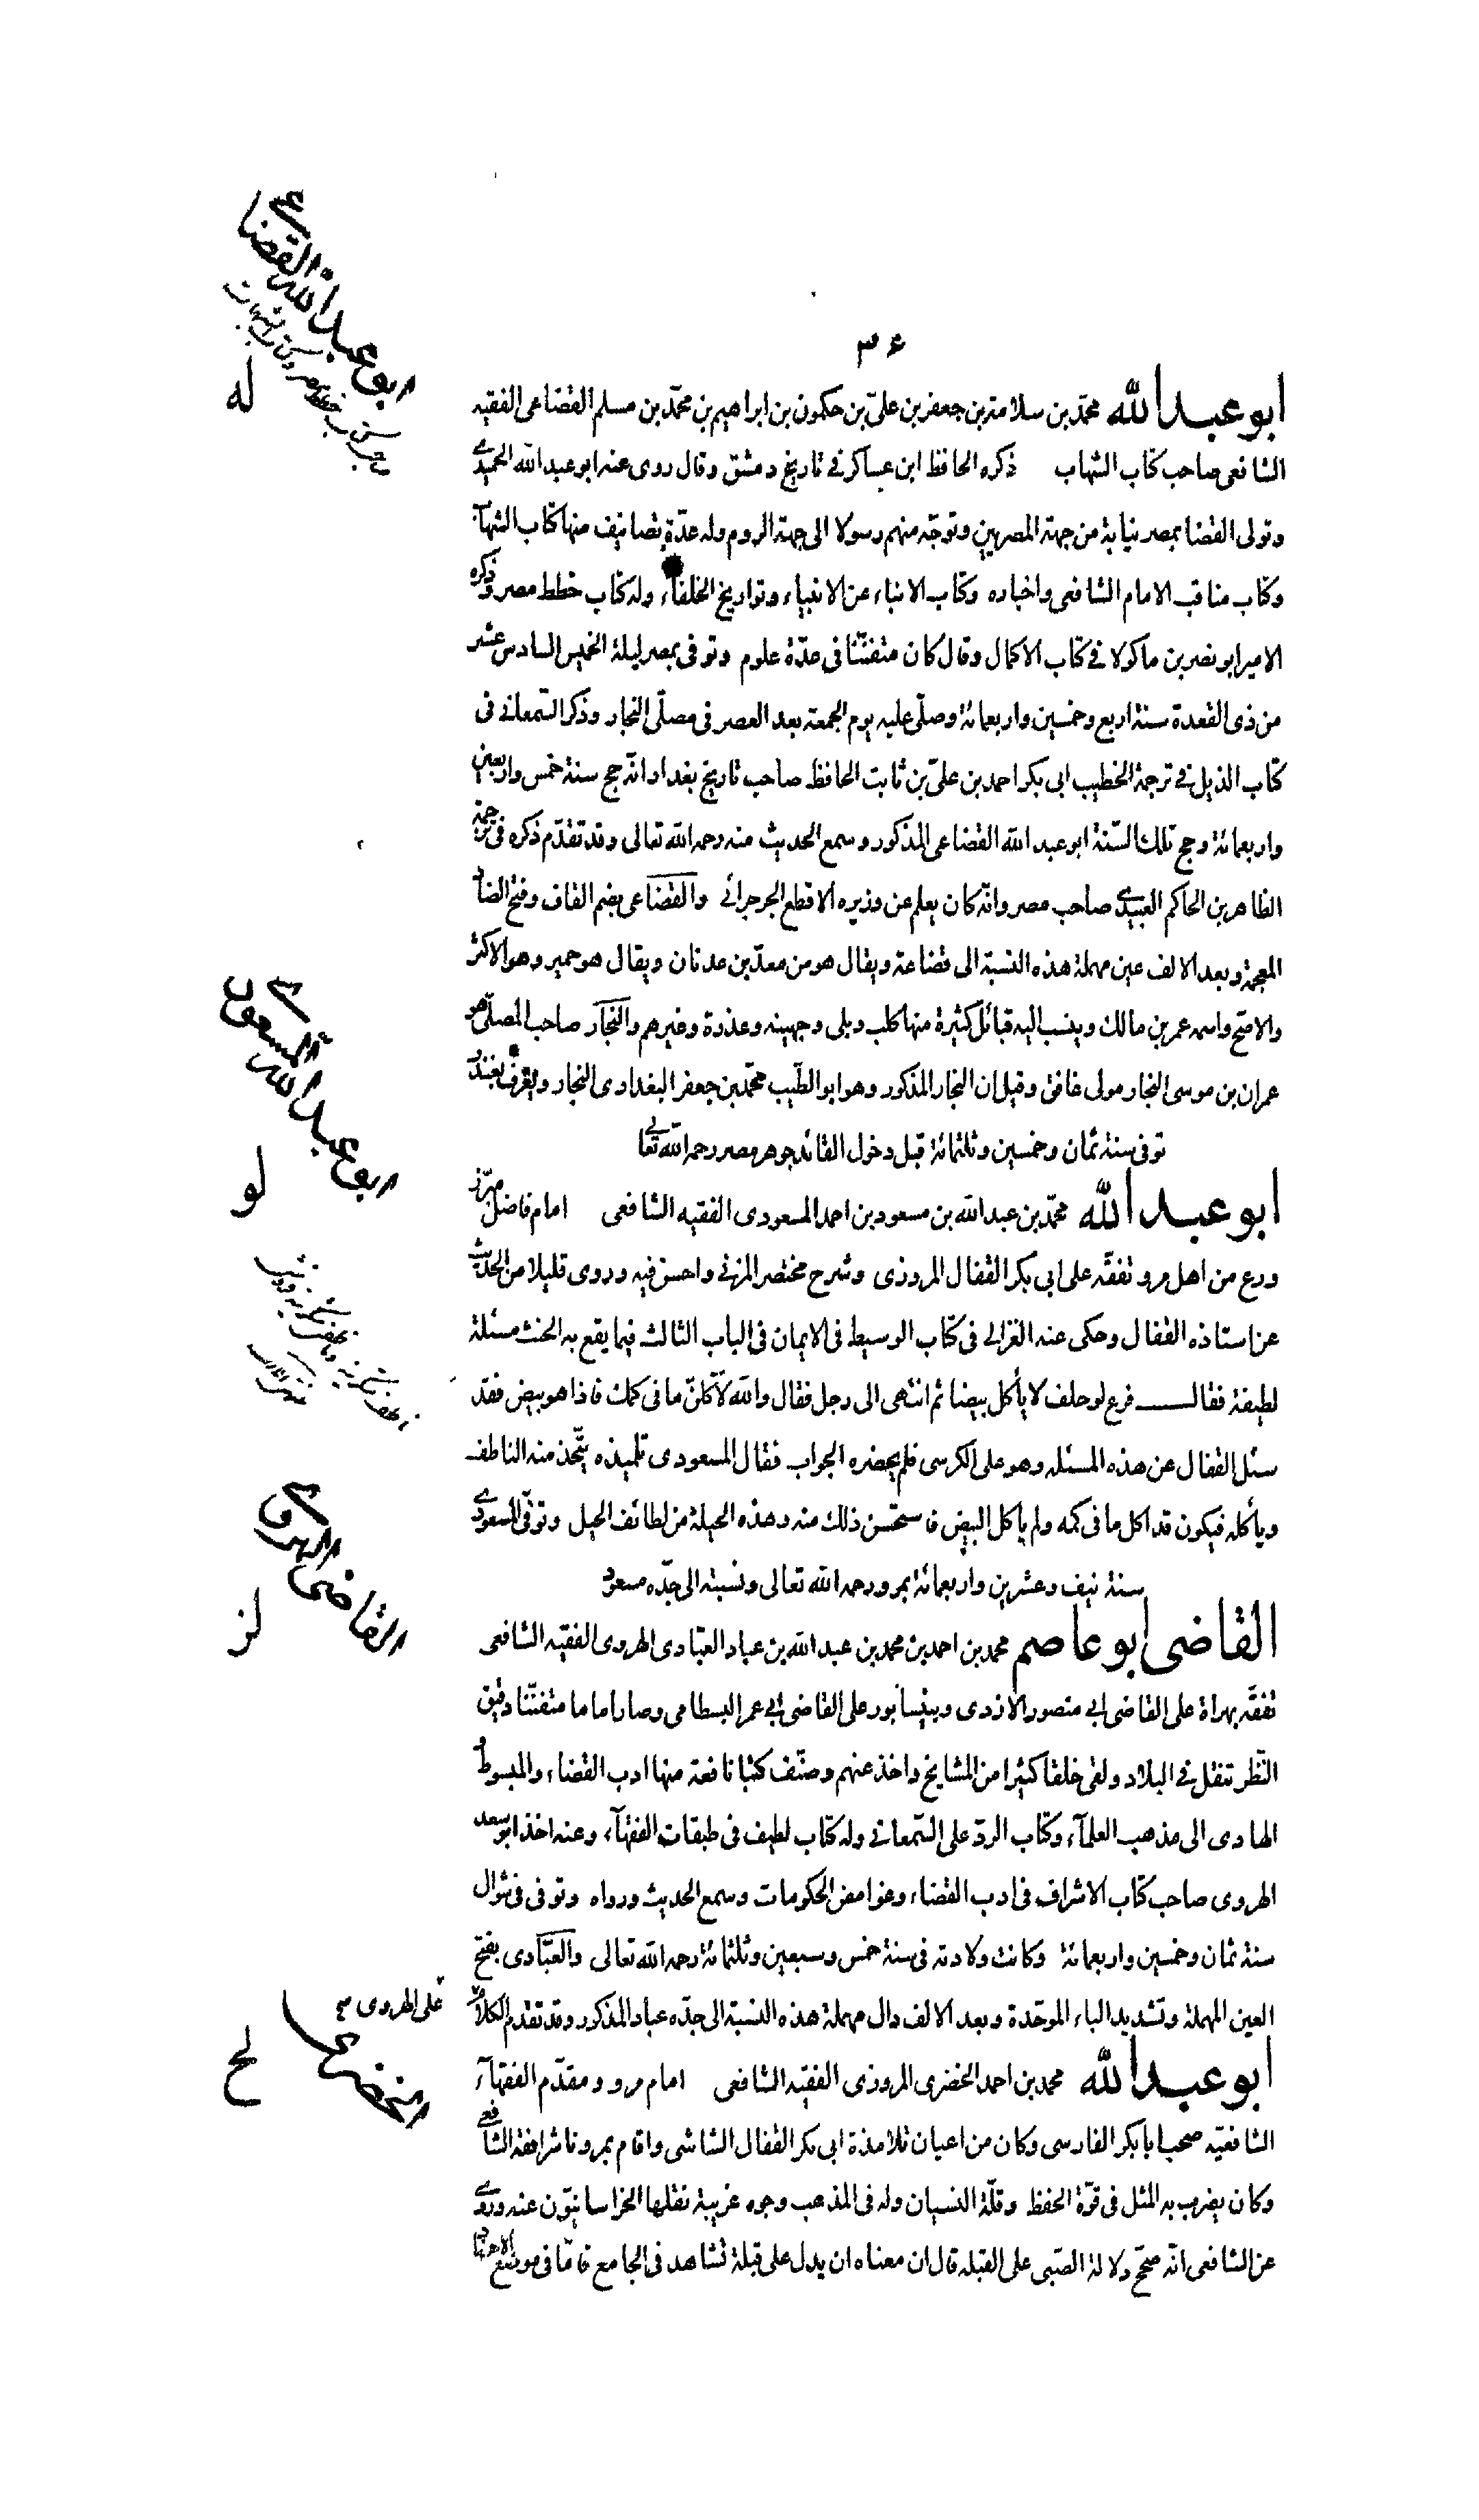 ٣٤
ابو عبد الله محمّد بن سلامة بن جعفر بن علىّ بن حكمون بن ابراهيم بن محمّد بن مسلم القضاعى الفقيه
الشافعى صاحب كتاب الشهاب ذكره الحافظ ابن عساكر فى تاريخ دمشق وقال روى عنه ابو عبد الله الحميدى
وتولى القضا بمصر نيابة من جهة المصريين وتوجّه منهم رسولا الى جهة الروم وله عدّة تصانيف منها كتاب الشهاب
وكتاب مناقب الامام الشافعى واخباره وكتاب الانباء عن الانبياء وتواريخ الخلفاء وله كتاب خطط مصر وذكره
الامير ابو نصر بن ماكولا فى كتاب الاكمال وقال كان متفنّنا فى عدّة علوم وتوفى بمصر ليلة الخميس السادس عشر
من ذى القعدة سنة اربع وخمسين واربعمائة وصلّى عليه يوم الجمعة بعد العصر فى مصلّى النجار وذكر السّمعانى فى
كتاب الذيل فى ترجمة الخطيب ابى بكر احمد بن علىّ بن ثابت الحافظ صاحب تاريخ بغداد انّه حج سنة خمس واربعين
واربعمائة وحج تلك السّنة ابو عبد الله القضاعى المذكور وسمع الحديث منه رحمه الله تعالى وقد تقدّم ذكره فى ترجمة
الظاهر بن الحاكم العبيدى صاحب مصر وانّه كان يعلم عن وزيره الاقطع الجرجرائى والقضاعى بضم القاف وفتح الضاد
المعجمة وبعد الالف عين مهملة هذه النسبة الى قضاعة ويقال هو من معدّ بن عدنان ويقال هو حمير وهو الاكثر
والاصّح واسمه عمر بن مالك وينسب اليه قبائل كثيرة منها كلب وبلى وجهينه وعذرة وغيرهم والنجّار صاحب المصلّى هو
عمران بن موسى النجار مولى غافق وقيل ان النجار المذكور وهو ابو الطّيب محمّد بن جعفر البغدادى النجار ويعرف بغندر
توفى سنة ثمان وخمسين وثلثمائة قبل دخول القائد جوهر مصر رحمه الله تعالى
ابو عبد الله محمّد بن عبد الله بن مسعود بن احمد المسعودى الفقيه الشافعى امام فاضل مبرّز
ورع من اهل مرو تفقّه على ابى بكر القفال المروزى وشرح مختصر المزنى واحسن فيه وروى قليلا من الحديث
عن استاذه القفال وحكى عنه الغزالى فى كتاب الوسيط فى الايمان فى الباب الثالث فيما يقع به الحنث مسئلة
لطيفة فقال فرع لو حلف لا يأكل بيضا ثم انتهى الى رجل فقال والله لآكلنّ ما فى كمك فاذا هو بيض فقد
سئل القفال عن هذه المسئله وهو على الكرسى فلم يحضره الجواب فقال المسعودى تلميذه يتّخذ منه الناطف
ويأكله فيكون قد اكل ما فى كمه ولم يأكل البيض فاستحسن ذلك منه وهذه الحيلة من لطائف الحيل وتوفّى المسعودى
سنة نيف وعشرين واربعمائة بمرو رحمه الله تعالى ونسبته الى جدّه مسعود
القاضى ابو عاصم محمد بن احمد بن محمد بن عبد الله بن عباد العبّادى الهروى الفقيه الشافعى
تفقّه بهراة على القاضى ابى منصور الازدى وبنيسابور على القاضى ابى عمر البسطامى وصار اماما متفنّنا دقيق
النّظر تنقل فى البلاد ولقى خلقا كثيرا من المشايخ واخذ عنهم وصنّف كتبا نافعة منها ادب القضاء والمبسوط
الهادى الى مذهب العلمآء وكتاب الردّ على السّمعانى وله كتاب لطيف فى طبقات الفقهآء وعنه اخذ ابو سعد
الهروى صاحب كتاب الاشراف فى ادب القضاء وغوامض الحكومات وسمع الحديث ورواه وتوفى فى شوال
سنة ثمان وخمسين واربعمائة وكانت ولادته فى سنة خمس وسبعين وثلثمائة رحمه الله تعالى والعبّادى بفتح
العين المهملة وتشديد الباء الموحّدة وبعد الالف دال مهملة هذه النسبة الى جدّه عباد المذكور وقد تقدم الكلام
على الهروى
ابو عبد الله محمد بن احمد الخضرى المروزى الفقيه الشافعى امام مرو ومقدّم الفقهآء
الشافعيّه صحب ابا بكر الفارسى وكان من اعيان تلامذة ابى بكر القفال الشاشى واقام بمرو ناشرا فقه الشافعى
وكان يضرب به المثل فى قوّة الحفظ وقلّة النسيان وله فى المذهب وجوه غريبة نقلها الخراسانيّون عنه وروى
عن الشافعى انّه صحّح دلالة الصّبى على القبله قال ان معناه ان يدل على قبلة تشاهد فى الجامع فامّا فى موضع الاجتهاد
ابو عبد الله القضاعى
له
ابو عبد الله المسعودى
لو
القاضى الهروى
لز
الخضرى
لح